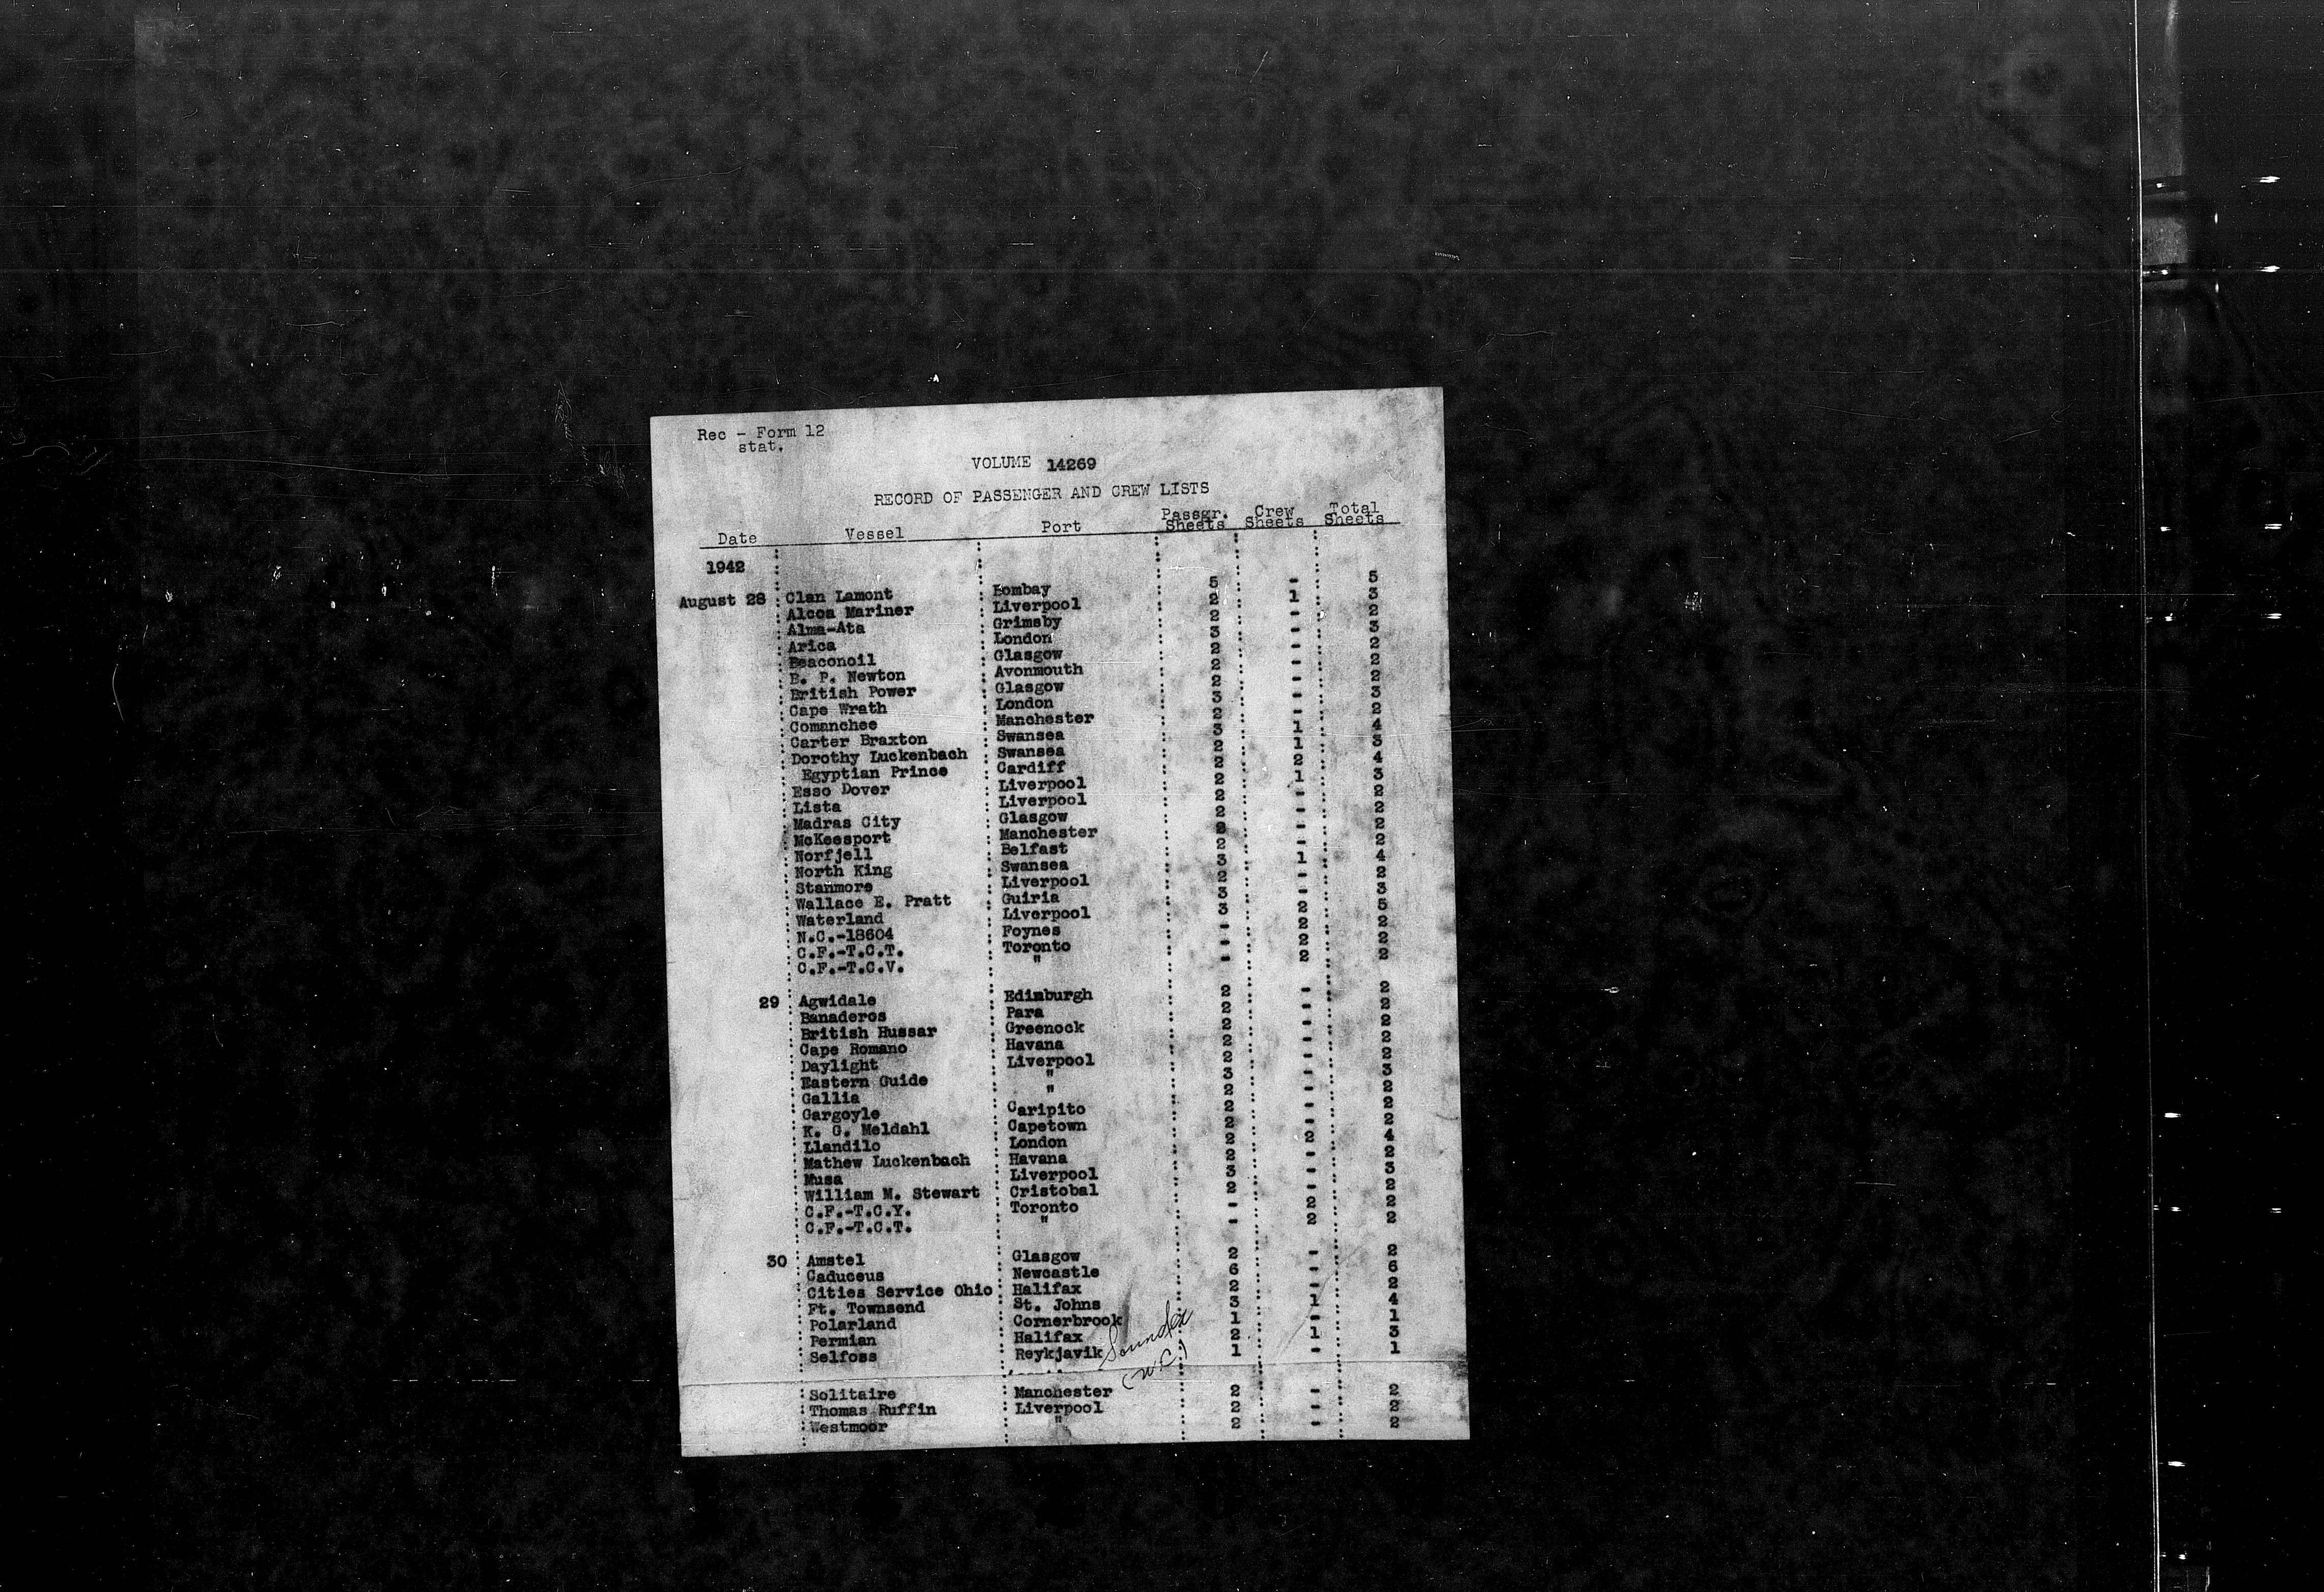 Rec - Form 12
stat.
VOLUME 14269
RECORD OF PASSENGER AND CREW LISTS
Date Vessel Port Passgr. Sheets Crew Sheets Total Sheets
1942
August 28 Clan Lamont Bombay 5 - 5
Alcoa Mariner Liverpool 2 1 3
Alma-Ata Grimsby 2 - 2
Arica London 3 - 3
Beaconoil Glasgow 2 - 2
E. P. Newton Avonmouth 2 - 2
British Power Glasgow 2 - 2
Cape Wrath London 3 - 3
Comanchee Manchester 2 - 2
Carter Braxton Swansea 3 1 4
Dorothy Luckenbach Swansea 2 1 3
Egyptian Prince Cardiff 2 2 4
Esso Dover Liverpool 2 1 3
Lista Liverpool 2 - 2
Madras City Glasgow 2 - 2
McKeesport Manchester 2 - 2
Norfjell Belfast 2 - 2
North King Swansea 3 1 4
Stanmore Liverpool 2 - 2
Wallace E. Pratt Guiria 3 - 3
Waterland Liverpool 3 2 5
N.C.-18604 Foynes - 2 2
C.F.-T.C.T. Toronto - 2 2
C.F.-T.C.V. " - 2 2
29 Agwidale Edinburgh 2 - 2
Banaderos Para 2 - 2
British Hussar Greenock 2 - 2
Cape Romano Havana 2 - 2
Daylight Liverpool 2 - 2
Eastern Guide " 3 - 3
Gallia " 2 - 2
Gargoyle Caripito 2 - 2
K. G. Meldahl Capetown 2 - 2
Llandilo London 2 2 4
Mathew Luckenbach Havana 2 - 2
Musa Liverpool 3 - 3
William M. Stewart Cristobal 2 - 2
C.F.-T.C.Y. Toronto - 2 2
C.F.-T.C.T. " - 2 2
30 Amstel Glasgow 2 - 2
Caduceus Newcastle 6 - 6
Cities Service Ohio Halifax 2 - 2
Ft. Townsend St. Johns 3 1 4
Polarland Cornerbrook 1 - 1
Permian Halifax 2 1 3
Selfoss Reykjavik 1 - 1
Soundex
(W.C.)
Solitaire Manchester 2 - 2
Thomas Ruffin Liverpool 2 - 2
Westmoor " 2 - 2